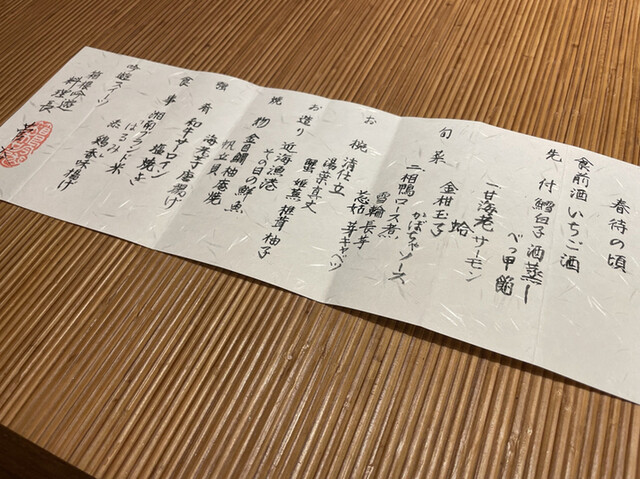 春待の頃
食前酒 いちご酒
先付 鱈白子酒蒸し
べっ甲餡
旬菜 金柑玉子 蛤
一、甘海老サーモン
二、相鴨ロース煮
かぼちゃソース
雪輪長芋
お椀 清仕立
湯葉真丈
蟹 姫蕪 椎茸 柚子
芯姑 芽キャベツ
お造り 近海漁港
その日の鮮魚
焼物 金目鯛柚庵焼
帆立貝
強肴 和牛サーロイン
塩焼き
海老芋唐揚げ
食事 湘南ブランド米
はるみ
赤だし 鶏香味揚げ
吟遊スイーツ
箱根吟遊
料理長